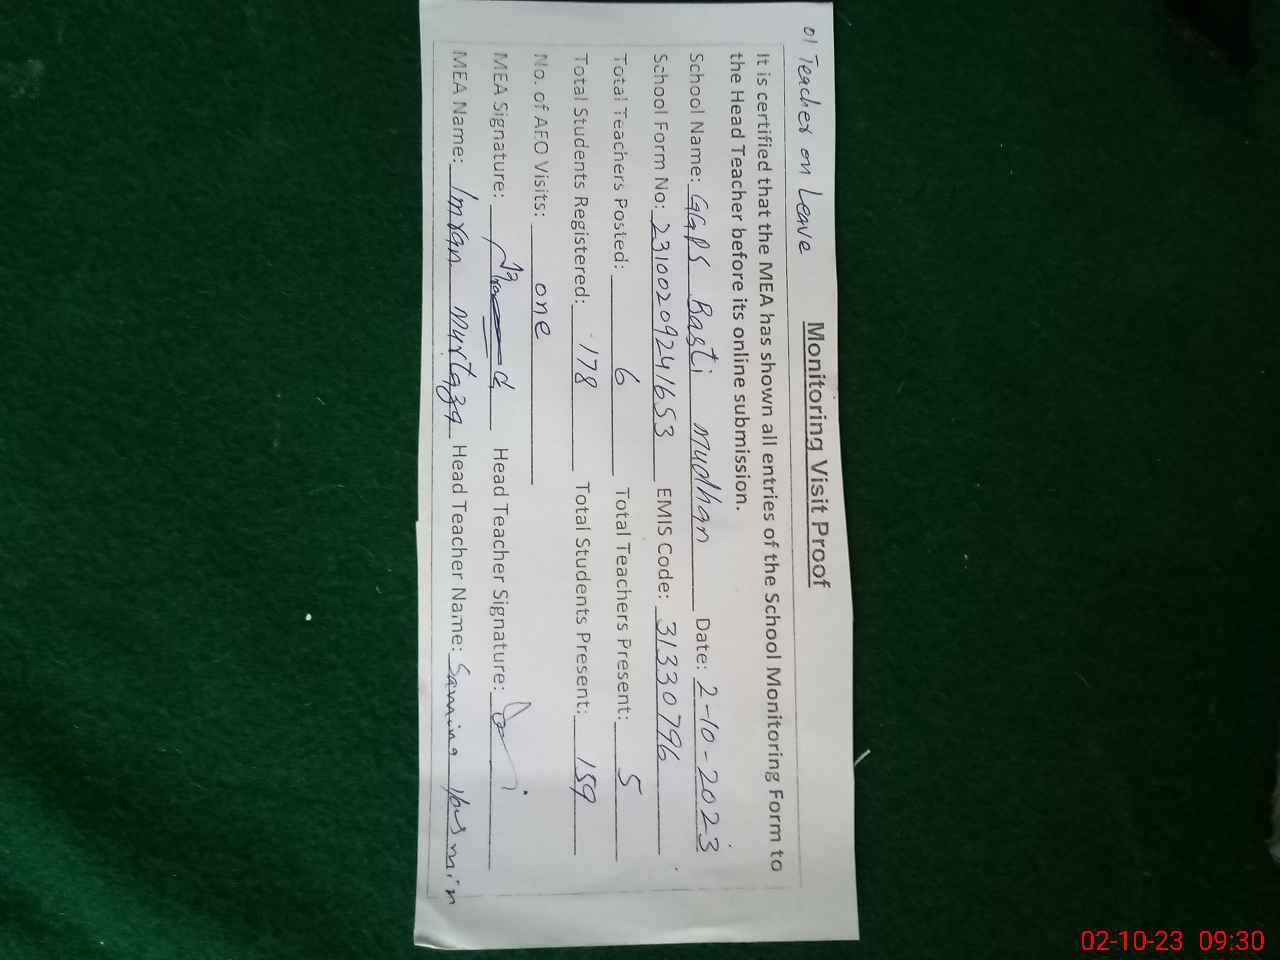 01 Teacher on Leave
Monitoring Visit Proof
It is certified that the MEA has shown all entries of the School Monitoring Form to
the Head Teacher before its online submission.
School Name: GGPS Basti Mudhan Date: 2-10-2023
School Form No: 23100209241653 EMIS Code: 31330796
Total Teachers Posted: 6 Total Teachers Present: 5
Total Students Registered: 178 Total Students Present: 159
No. of AEO Visits: one
MEA Signature: Head Teacher Signature:
MEA Name: Imran Murtaza Head Teacher Name:
02-10-23 09:30